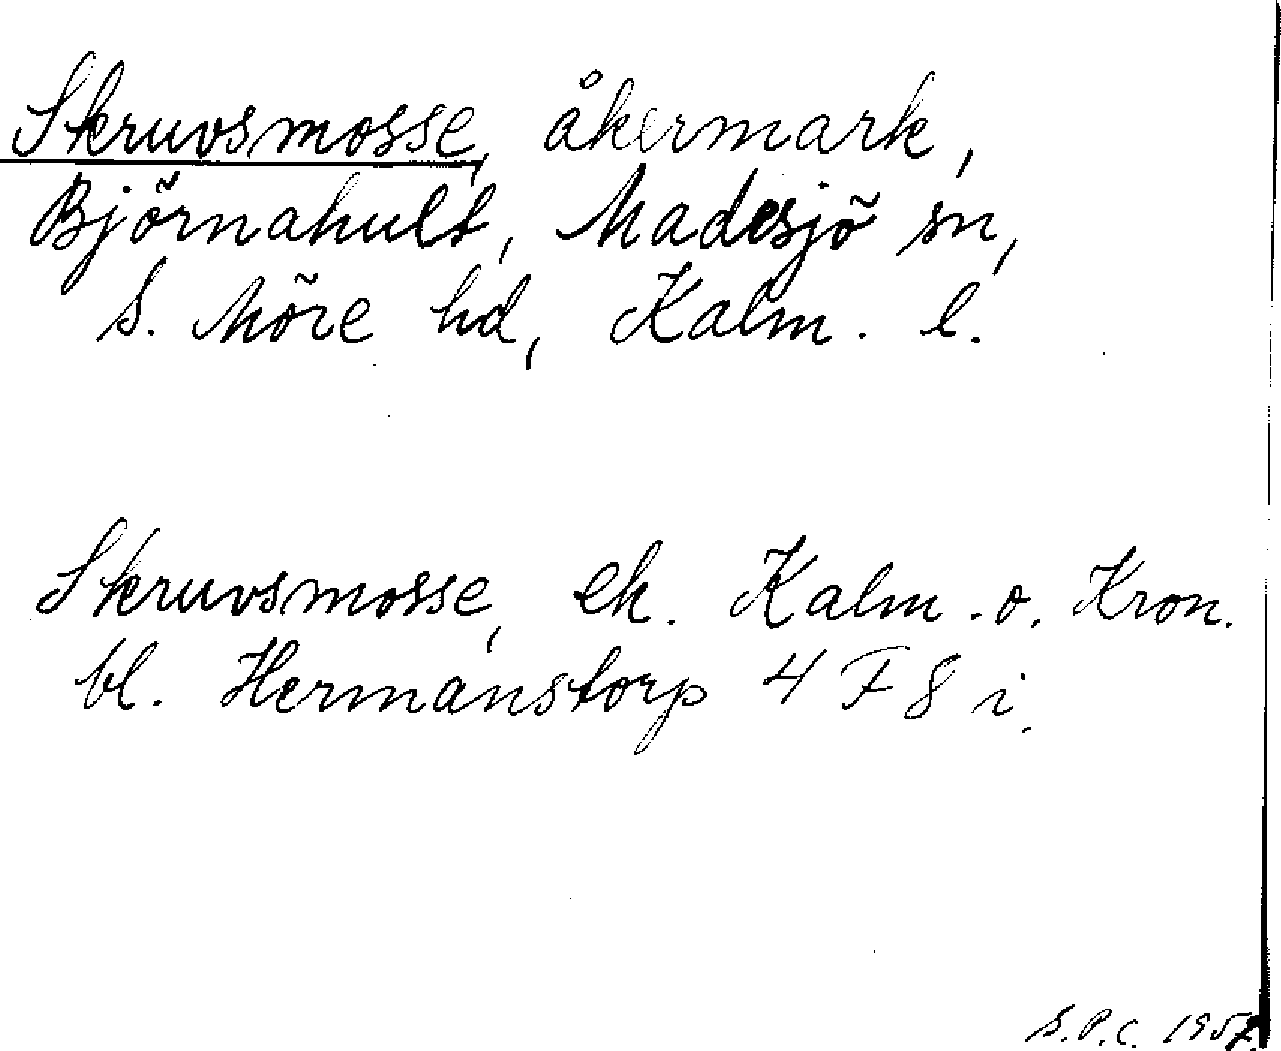 Skruvsmosse, åkermark,
Björnahult, Madesjö sn,
S. Möre hd, Kalm. l.
Skruvsmosse, ek. Kalm. o. Kron.
bl. Hermanstorp 4 F 8 i.
S.P.C. 1957.